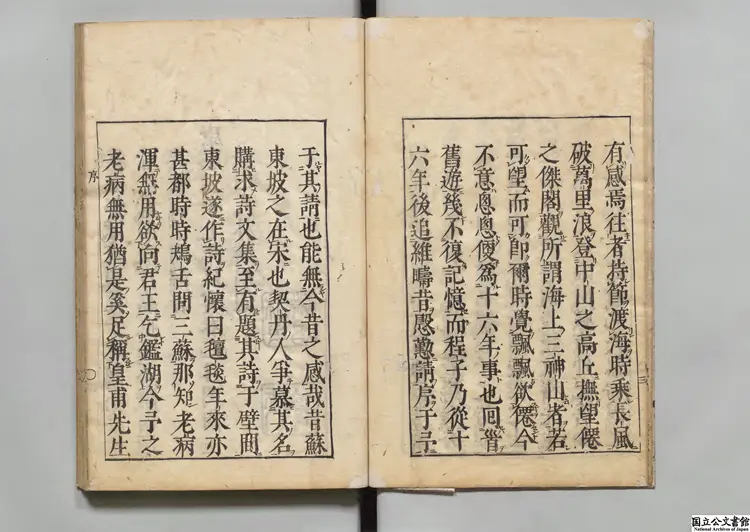 有感焉往者持節渡海時乘長風
破萬里浪登中山之高丘撫望僊
之傑閣觀所謂海上三神山者若
可望而可卽爾時覺飄飄欲僊今
不意悤悤便爲十六年事也囘首
舊遊幾不復記憶而程子乃從十
六年後追維疇昔慇懃請序于予
三
于其請也能無今昔之感哉昔蘇
東坡之在宋也契丹人爭慕其名
購求詩文集至有題其詩于壁間
東坡遂作詩紀懷曰氊毯年來亦
甚都時時鴂舌問三蘇那知老病
渾無用欲向君王乞鑑湖今予之
老病無用猶是奚足稱皇甫先生
序
国立公文書館
National Archives of Japan